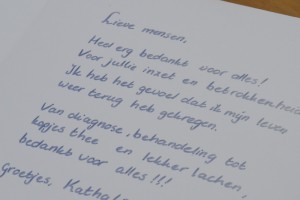 Lieve mensen,
Heel erg bedankt voor alles!
Voor jullie inzet en betrokkenheid
Ik heb het gevoel dat ik mijn leven
weer terug heb gekregen.
Van diagnose, behandeling tot
kopjes thee en lekker lachen,
bedankt voor alles!!!
Groetjes, Kathal